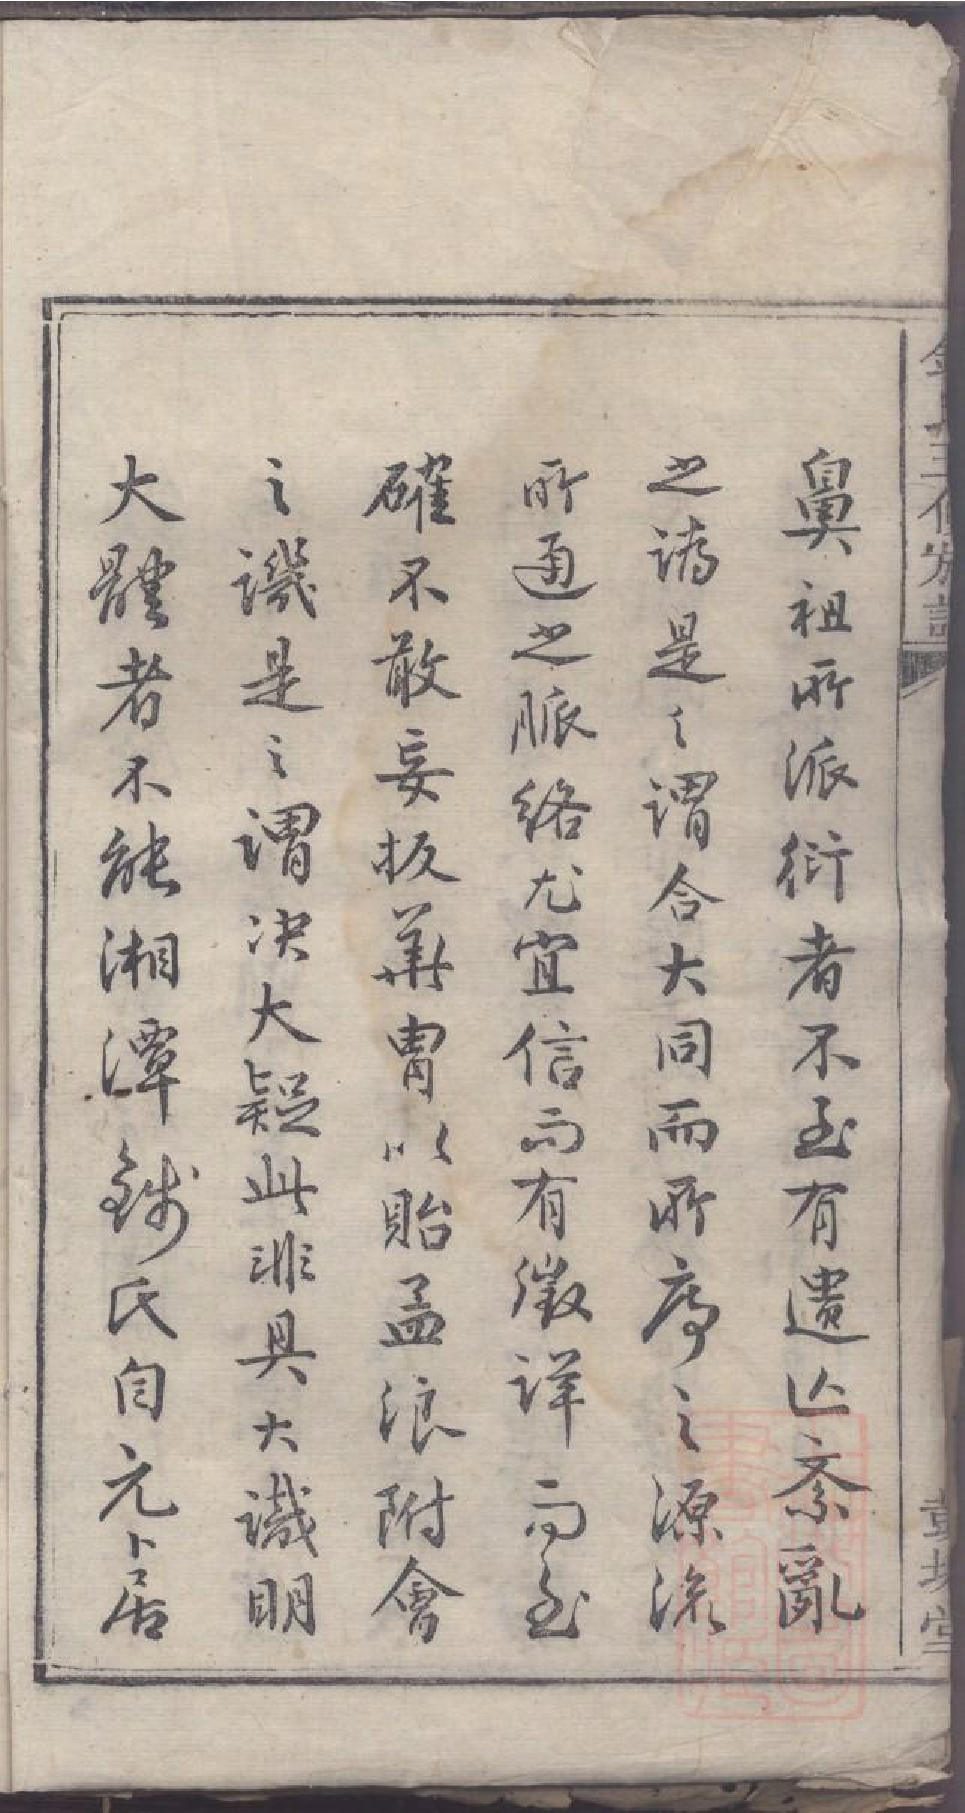 鼻祖所派衍者不至有遺亾紊亂
之誚是之謂合大同而所序之源流
所通之脈絡尤宜信而有徵詳而至
確不敢妄扳華胄以貽孟浪附會
之譏是之謂决大疑此非具大識明
大體者不能湘潭錢氏自元卜居
彭城堂